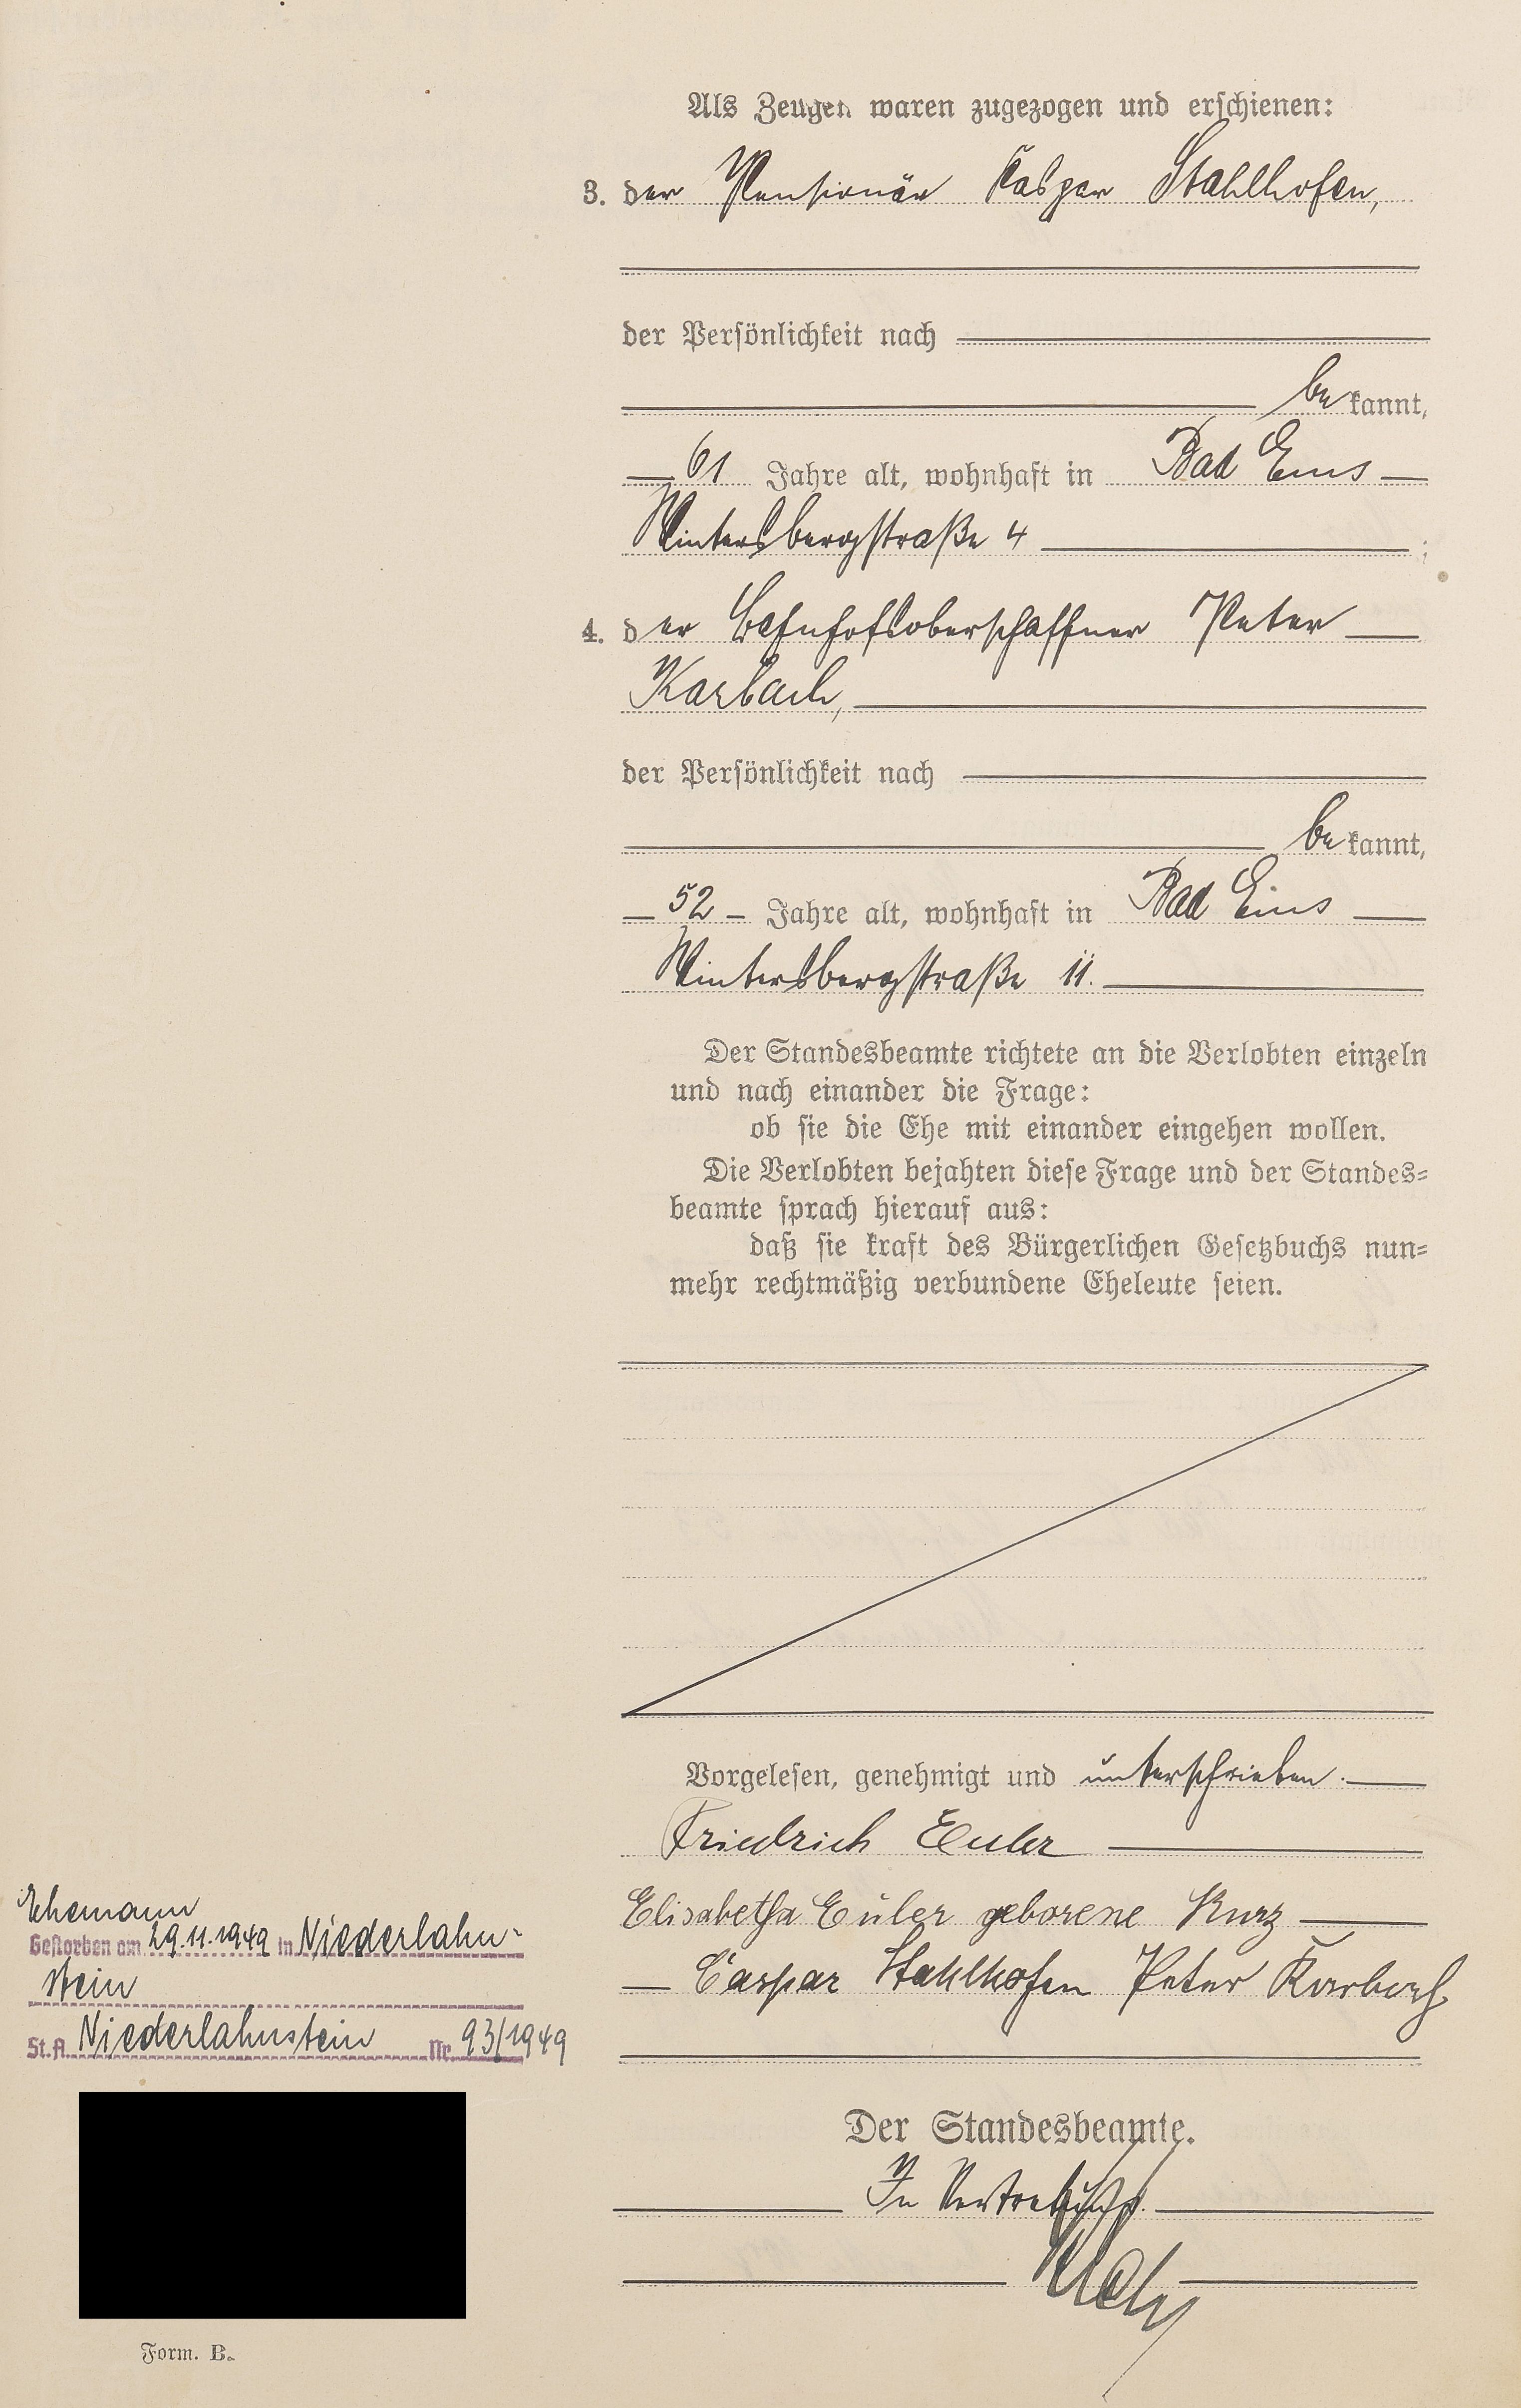 Als Zeugen waren zugezogen und erschienen:
3. der Pensionär Kaspar Stahlhofen,
der Persönlichkeit nach
be kannt,
61 Jahre alt, wohnhaft in Bad Ems
Wintersbergstraße 4 ;
4. der Bahnhofsoberschaffner Peter
Karbach,
der Persönlichkeit nach
be kannt,
52 Jahre alt, wohnhaft in Bad Ems
Wintersbergstraße 11.
Der Standesbeamte richtete an die Verlobten einzeln
und nach einander die Frage:
ob sie die Ehe mit einander eingehen wollen.
Die Verlobten bejahten diese Frage und der Standes-
beamte sprach hierauf aus:
daß sie kraft des Bürgerlichen Gesetzbuchs nun-
mehr rechtmäßig verbundene Eheleute seien.
Vorgelesen, genehmigt und unterschrieben.
Friedrich Euler
Elisabetha Euler geborene Kurz
Caspar Stahlhofen Peter Karbach
Der Standesbeamte.
In Vertretung.
Ehemann
Gestorben am 29.11.1949 in Niederlahn-
stein
St.A. Niederlahnstein Nr. 93/1949
Form. B.